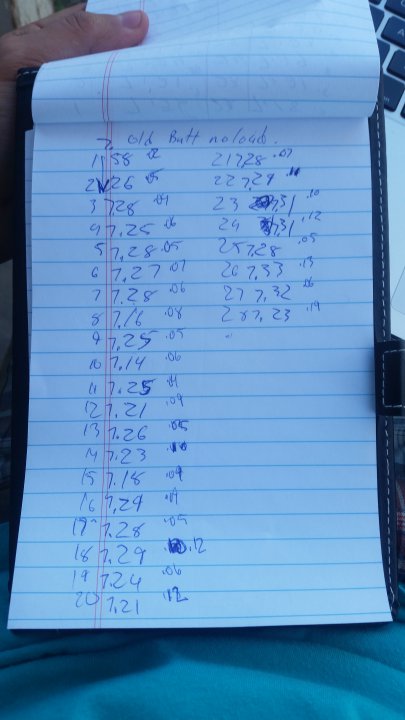 7. old Batt no load.
1 .58 .12
2 7.26 .05
3 7.28 .01
4 7.25 .06
5 7.28 .05
6 7.27 .07
7 7.28 .06
8 7.16 .08
9 7.25 .05
10 7.14 .06
11 7.25 .01
12 7.21 .09
13 7.26 .05
14 7.23 .10
15 7.18 .09
16 7.29
17 7.28 .05
18 7.29 .12
19 7.24 .06
20 7.21 .12
21 7.28 .07
22 7.29
23 7.31 .10
24 7.31 .12
25 7.28 .05
26 7.33 .13
27 7.32 .06
28 7.23 .19